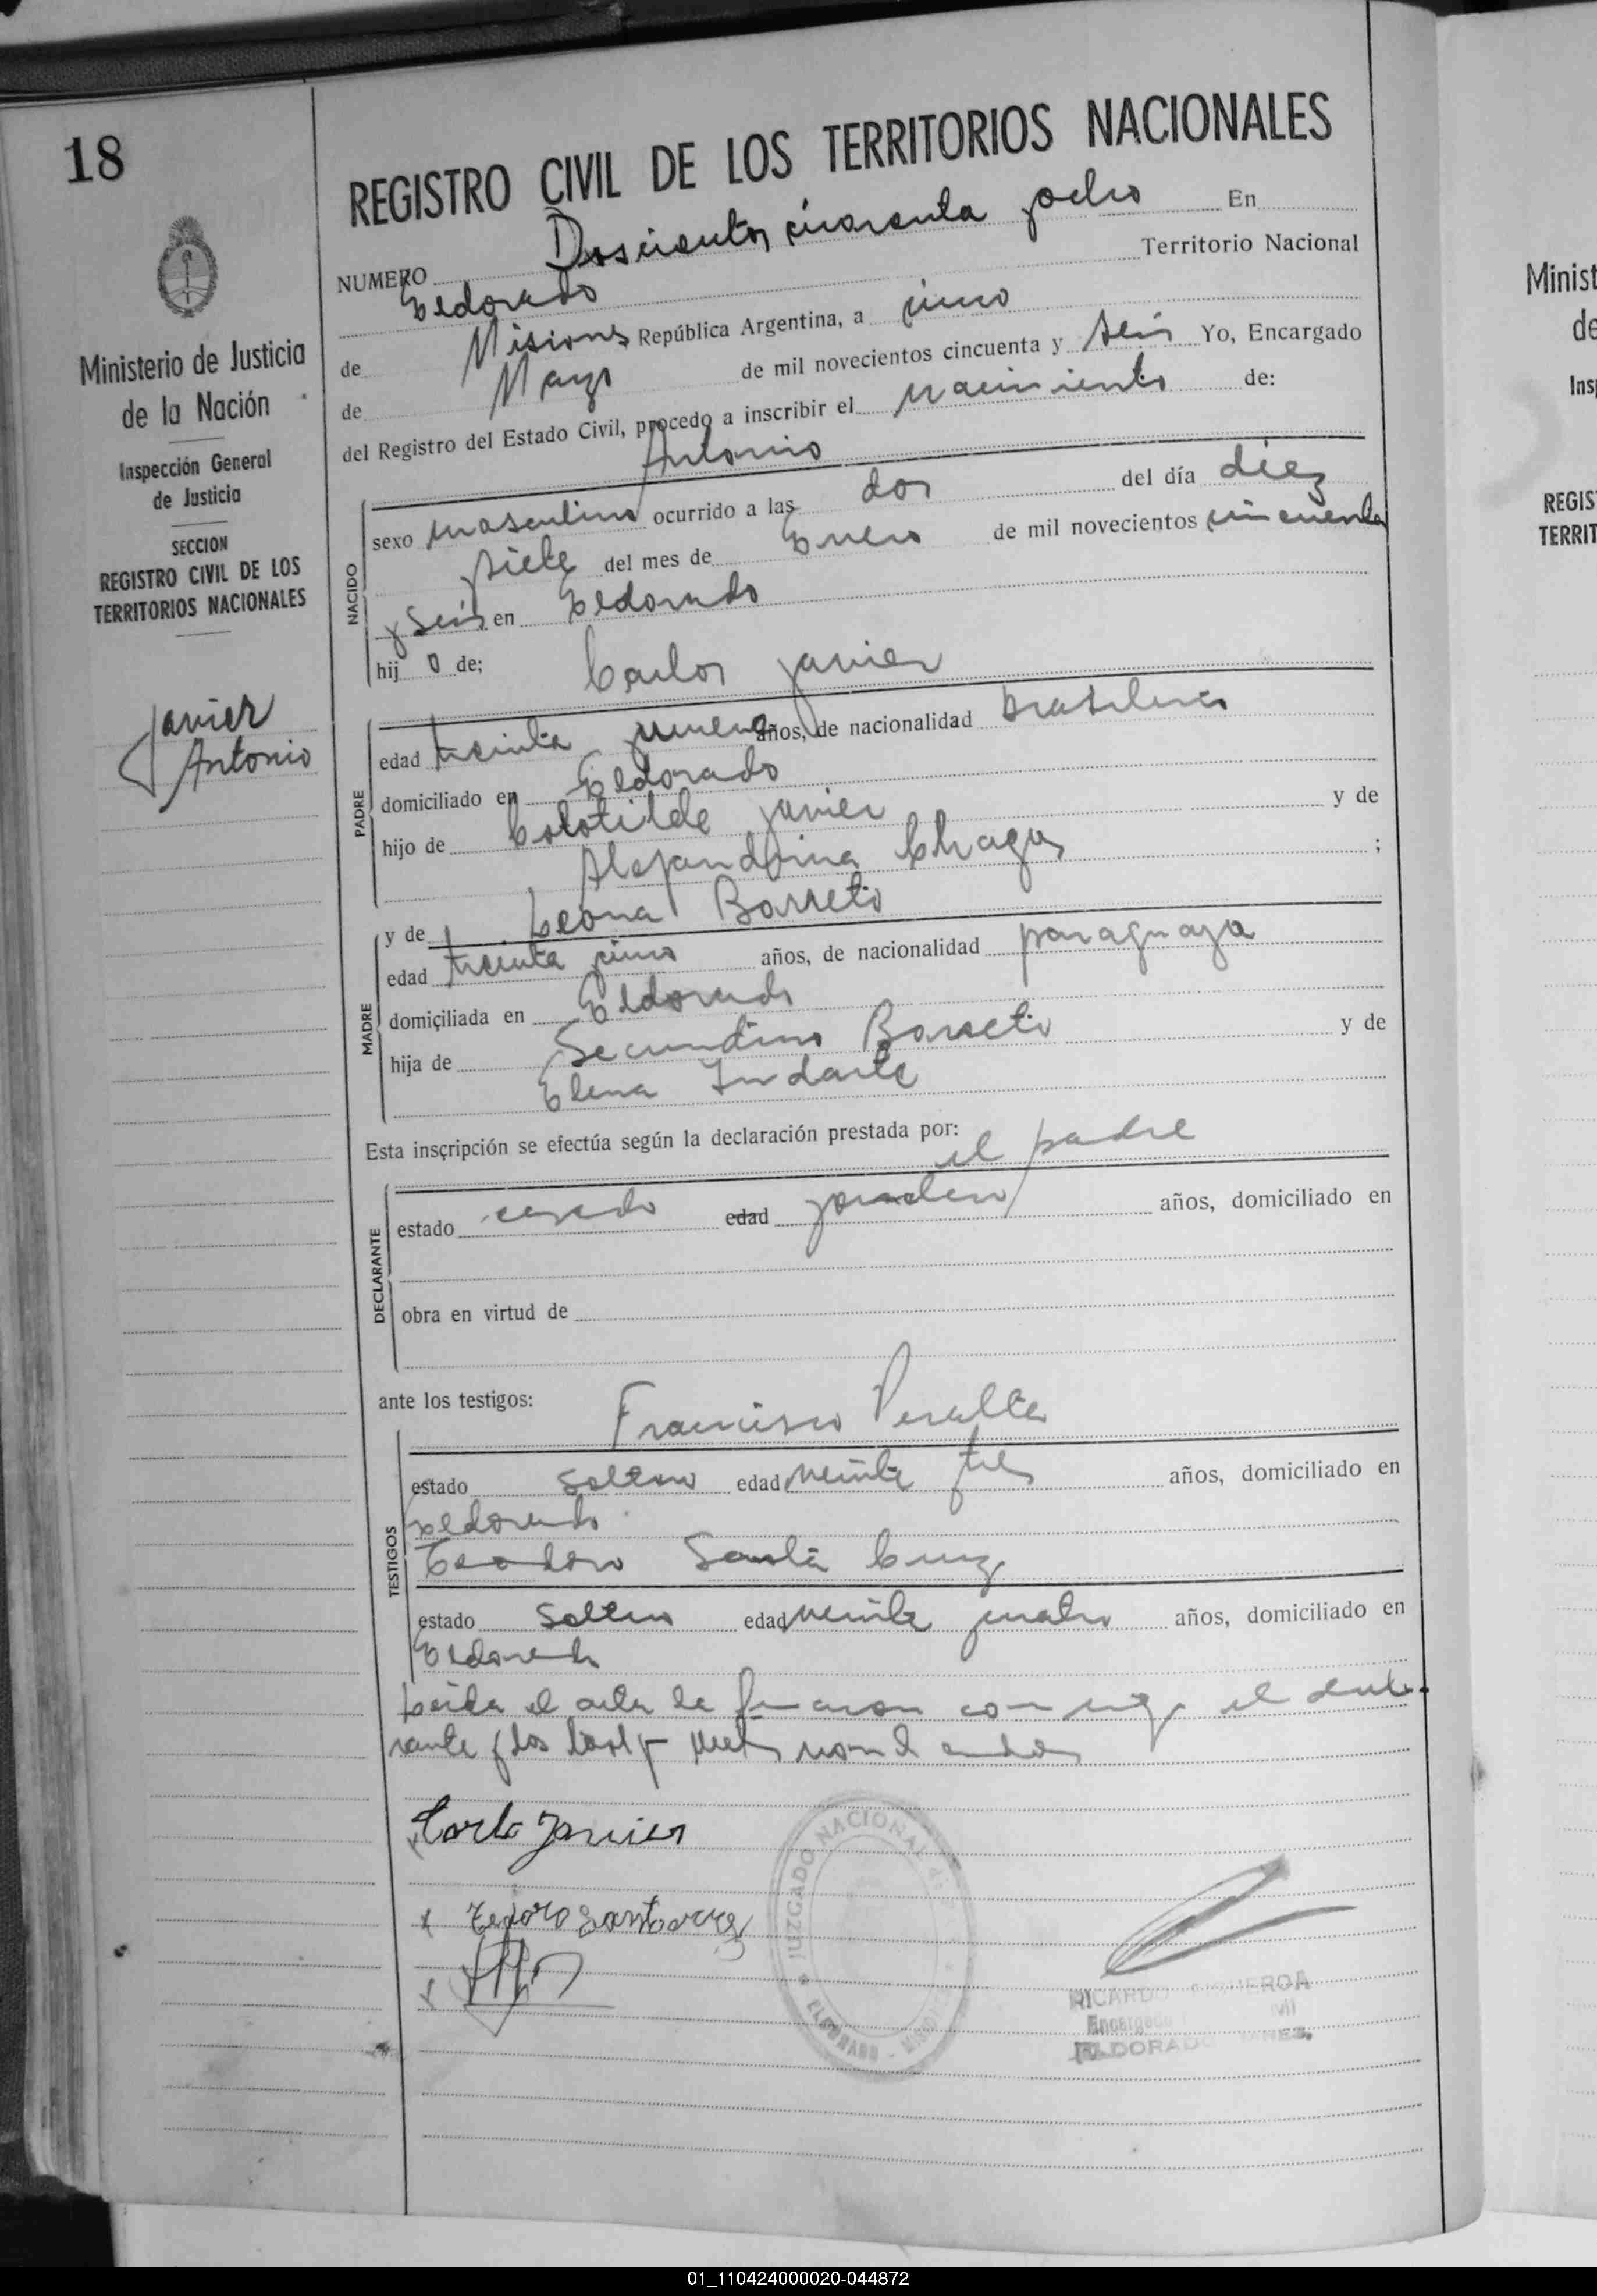 18
REGISTRO CIVIL DE LOS TERRITORIOS NACIONALES
Ministerio de Justicia
de la Nación
Inspección General
de Justicia
SECCION
REGISTRO CIVIL DE LOS
TERRITORIOS NACIONALES
Javier
Antonio
NUMERO Doscientos cuarenta y ocho En
Eldorado Territorio Nacional
de Misiones República Argentina, a cinco
de Mayo de mil novecientos cincuenta y seis Yo, Encargado
del Registro del Estado Civil, procedo a inscribir el nacimiento de:
Antonio
NACIDO
sexo masculino ocurrido a las dos del día diez
y siete del mes de Enero de mil novecientos cincuenta
y seis en Eldorado
hijo de; Carlos Javier
PADRE
edad treinta y nueve años, de nacionalidad brasilera
domiciliado en Eldorado
hijo de Colotilde Javier y de
Alejandrina Chagas ;
y de Leona Barreto
MADRE
edad treinta y cinco años, de nacionalidad paraguaya
domiciliada en Eldorado
hija de Secundino Barreto y de
Elena Indarte
Esta inscripción se efectúa según la declaración prestada por:
el padre
DECLARANTE
estado casado edad años, domiciliado en
obra en virtud de
ante los testigos: Francisco Peralta
TESTIGOS
estado soltero edad veinte y tres años, domiciliado en
Eldorado
Teodoro Santa Cruz
estado soltero edad veinte y cuatro años, domiciliado en
Eldorado
Leida el acta la firmaron conmigo el decla-
rante y los
Carlo Javier
x Teodoro Santacruz
x
JUZGADO NACIONAL DE
ELDORADO
RICARDO FIGUEROA
Encargado
ELDORADO
Minist
de
Insp
REGIS
TERRIT
01_110424000020-044872